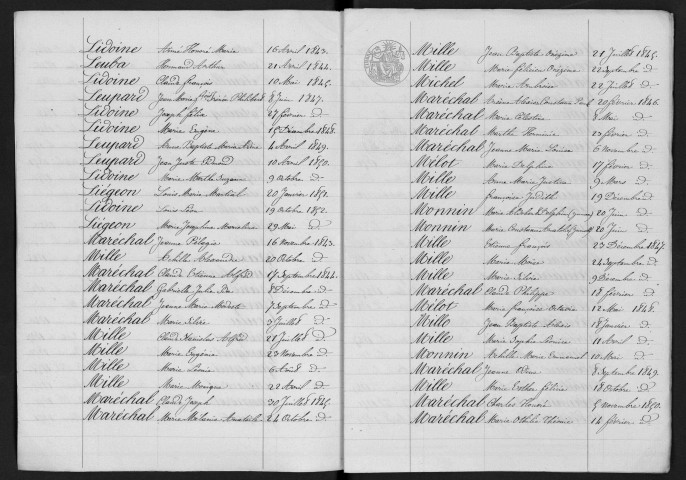 Lidoine Aimé Honoré Marie 16 Avril 1843.
Leuba Arthur 21 Avril 1844.
Lidoine Claude françois 10 Mai 1845.
Leupard Jean Marie Philibert 8 Juin 1847.
Lidoine Joseph félix 27 février d°
Lidoine Marie Eugène 15 Décembre 1848.
Leupard Baptiste Marie 4 Avril 1849.
Leupard Jean Juste Edmond 10 Avril 1850.
Lidoine Marie Marthe 9 Octobre d°
Liégeon Louis Marie Martial 20 Janvier 1851.
Lidoine Louis Léon 19 Octobre 1852.
Liégeon Marie Joséphine 29 Mai d°
Maréchal Jeanne Pélagie 16 Novembre 1843.
Mille Achille Alexandre 20 Octobre d°
Maréchal Claude Etienne Alfred 17 Septembre 1844.
Maréchal Gabrielle Julie 8 Décembre d°
Maréchal Jeanne Marie Modeste 7 Septembre d°
Maréchal Marie 3 Juillet d°
Mille Claude Stanislas Alfred 21 Juillet d°
Mille Marie Eugénie 23 Novembre d°
Mille Marie Louise 6 Août d°
Mille Marie Monique 22 Avril d°
Maréchal Claude Joseph 30 Juillet 1845.
Maréchal Marie Mélanie 24 Octobre d°
Mille Jean Baptiste Origène 21 Juillet 1845.
Mille Marie Origène 22 Septembre d°
Michel Marie 22 Juillet d°
Maréchal 20 février 1846.
Maréchal Marie Célestine 8 Mai d°
Maréchal Marthe Herminie 23 février d°
Maréchal Jeanne Marie Louise 6 Novembre d°
Mélot Marie Delphine 17 février d°
Mille Anne Marie Justine 9 Mars d°
Mille françoise Judith 19 Décembre d°
Monnin Marie 20 Juin d°
Monnin Marie Constance 20 Juin d°
Mille Etienne françois 23 Décembre 1847.
Mille Marie 24 Septembre d°
Mille Marie 9 Décembre d°
Maréchal Claude Philippe 18 février d°
Mélot Marie françoise Octavie 12 Mai 1848.
Mille Jean Baptiste 18 Janvier d°
Mille Marie Sophie 11 Avril d°
Monnin Achille Marie Emmanuel 10 Mai d°
Maréchal Jeanne 8 Septembre 1849.
Mille Marie Esther 18 Octobre d°
Maréchal Charles Honoré 5 Novembre 1850.
Maréchal Marie Othilie 14 février d°